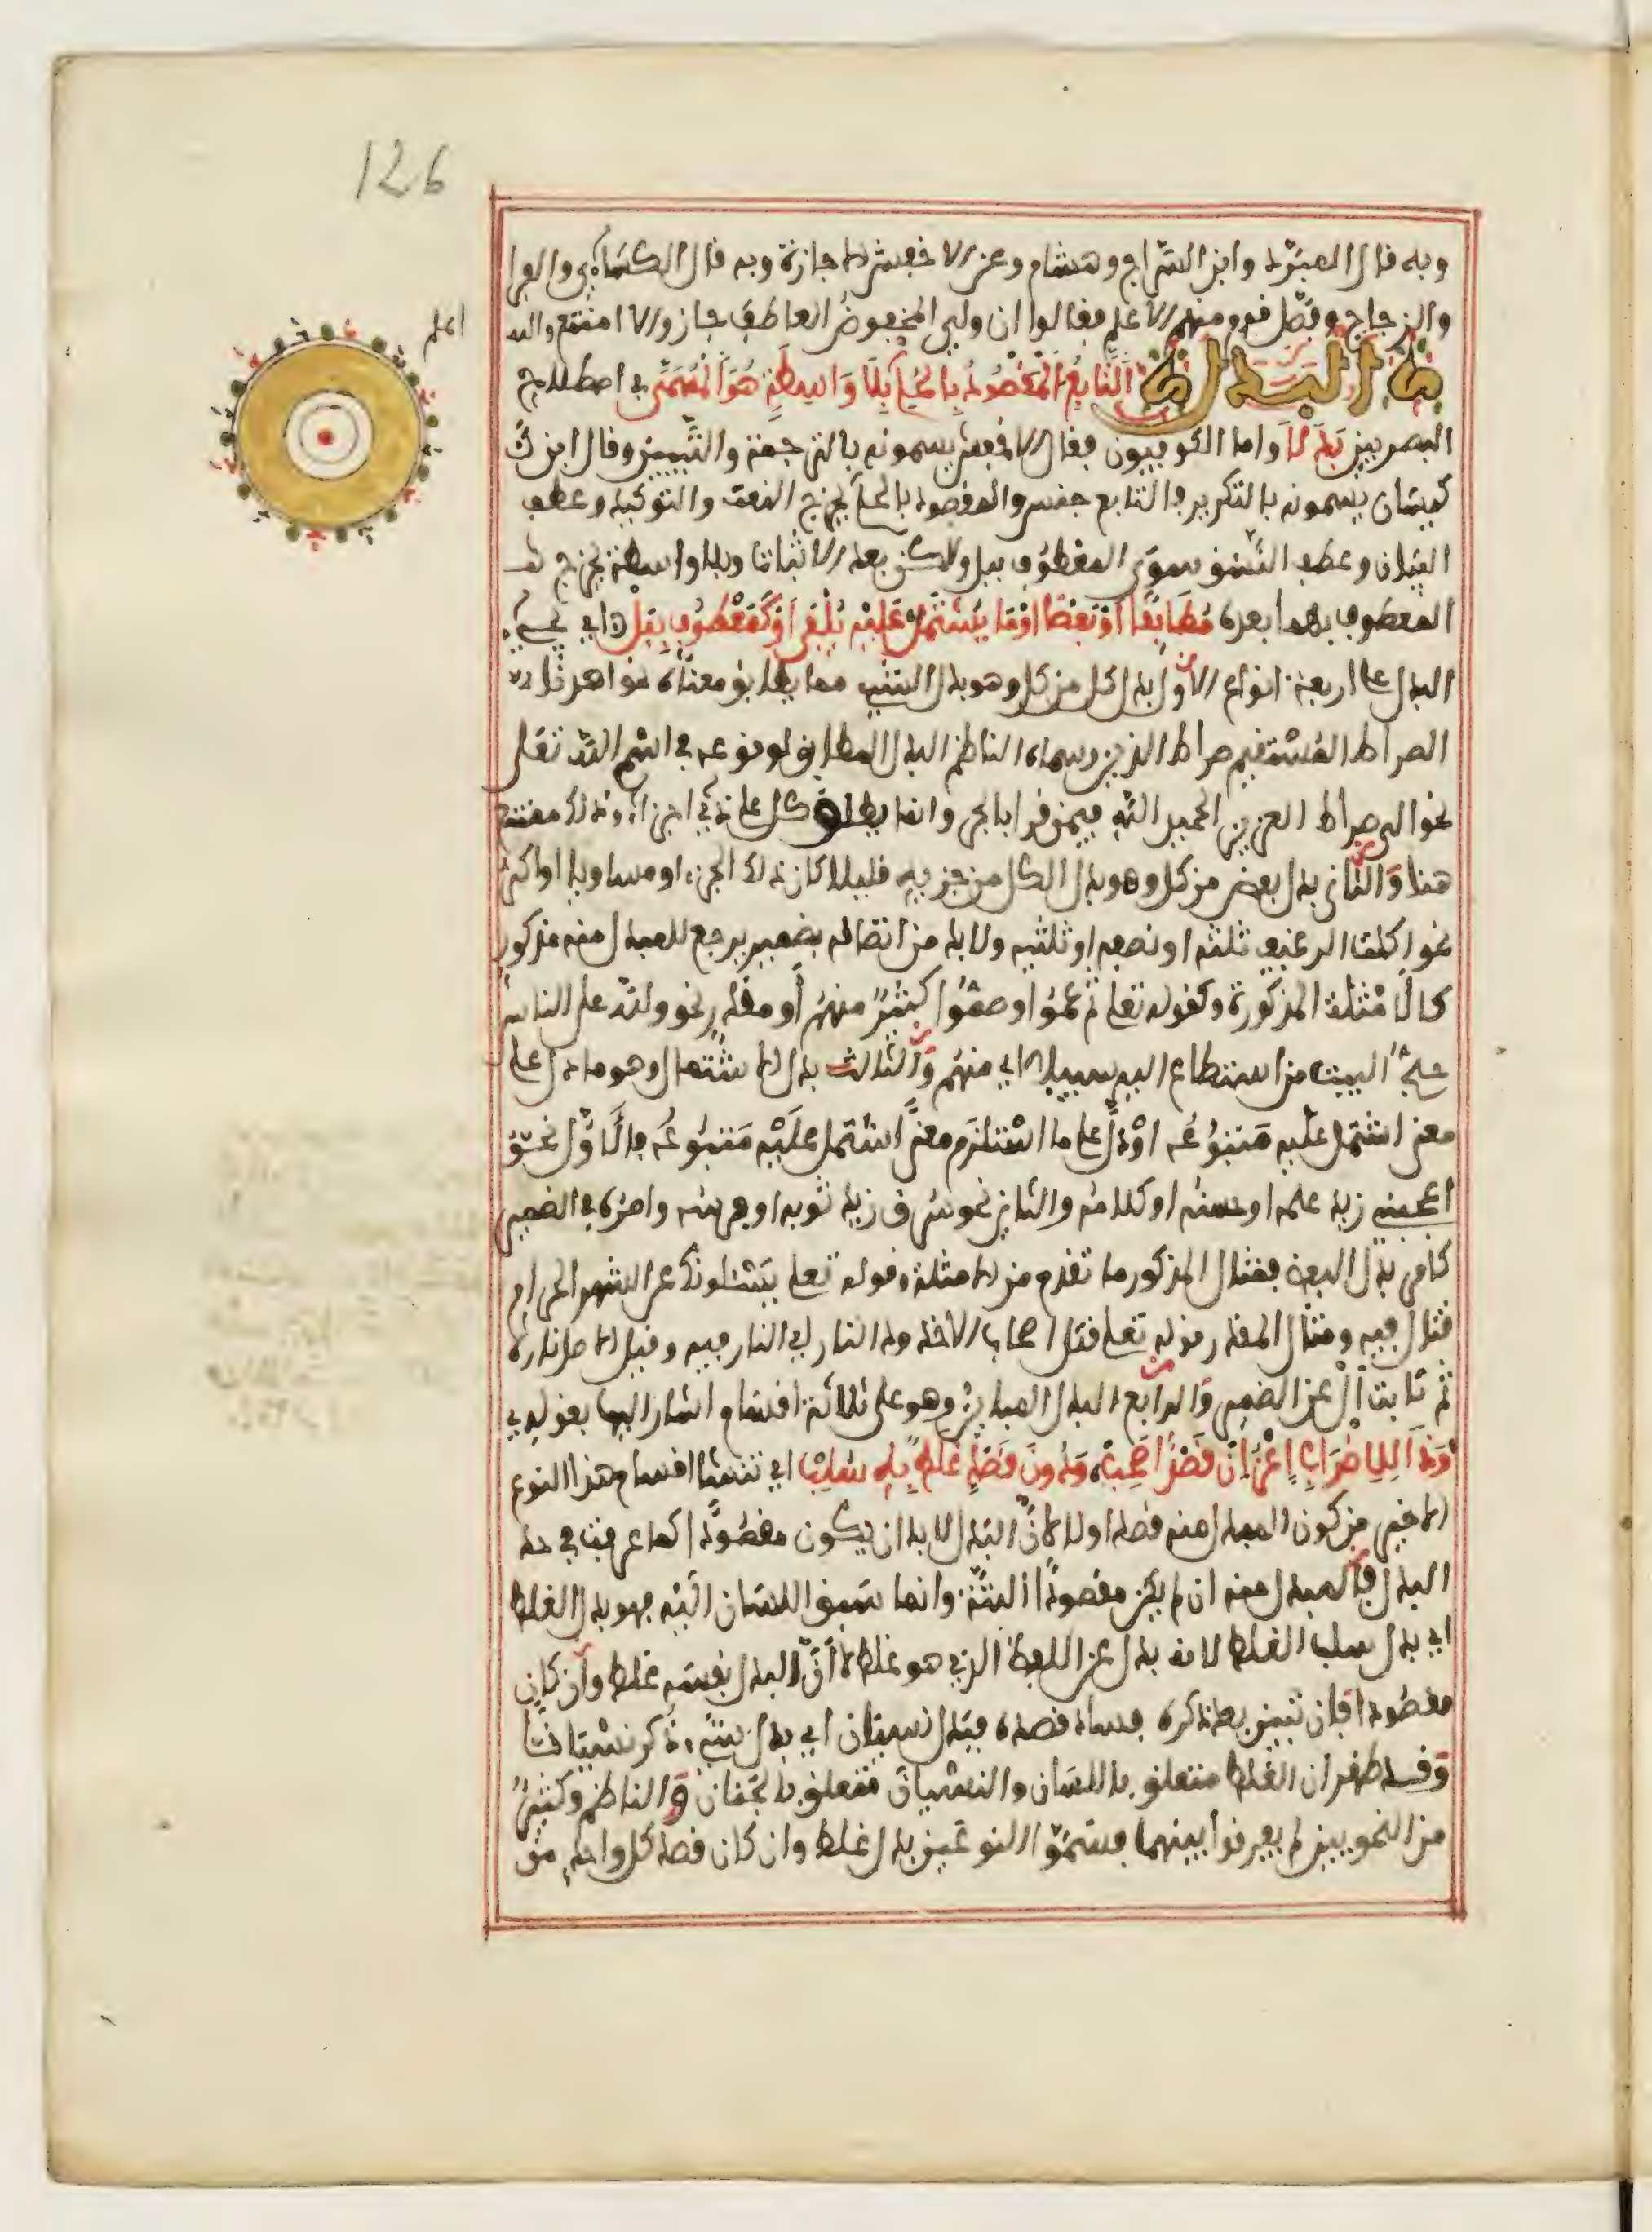 126
وبه قال المبرد وابن السراج وهشام وعن الاخفش الاجازة وبه قال الكسآءي والفرا
والزجاج وفصّل قوم ومنهم الاعلم فقالوا ان ولي المخفوضُ العاطف جاز والا امتنع والله
اعلم
البدل التَّابِعُ الْمَقْصُودُ بِالْحُكْمِ بِلَا وَاسِطَةٍ هُوَ الْمُسَمَّى في اصطلاح
البصريين بَدَلَا واما الكوفيون فقال الاخفش يسمونه بالترجمة والتَّبيين وقال ابن
كيسان يسمونه بالتكرير فالتابع جنس والمقصود بالحكم يخرج النعت والتوكيد وعطف
البيان وعطف النَّسَق سوى المعطوف ببل ولكن بعد الاثبات وبلا واسطة يخرج
المعطوف بهما بعده مُطَابِقًا أَوْ بَعْضًا أَوْ مَا يَشْتَمِلْ عَلَيْهِ يُلْفَى أَوْ كَمَعْطُوفٍ بِبَلْ اي يجيء
البدل على اربعة انواع الأول بدل كل من كل وهو بدل الشيء مما يطابق معناه نحو اهدنا
الصراط المستقيم صراط الذين وسماه الناظم البدل المطابق لوقوعه في اسم الله تعلى
نحو الى صراط العزيز الحميد اللهِ فيمن قرا بالجر وانما يطلق كل على ذي اجزاء وذلك ممتنع
هنا وَالثاني بدل بعض من كل وهو بدل الكل من جزءيه قليلا كان ذلك الجزء او مساويا او اكثر
نحو اكلت الرغيف ثلثه او نصفه او ثلثيه ولا بد من اتصاله بضمير يرجع للمبدل منه مذكور
كالأمثلة المذكورة وكقوله تعلى ثم عموا وصموا كثيرٌ منهم أو مقدر نحو ولله على الناس
حجُّ البيت من استطاع اليه سبيلا اي منهم وَالثالث بدل الاشتمال وهو ما دل على
معنى اشتمل عليه مَتبُوعُه اوْ دلَّ على ما استلزم معنًى اشتمل عَلَيْهِ مَتبُوعُه فالأوَّل نحو
اعجبني زيد علمه او حسنه او كلامه والثاني نحو سُرق زيد ثوبه او فرسه وامره في الضمير
كامر بدل البعض فمثال المذكور ما تقدم من الامثلة وقوله تعلى يَسْئلونك عن الشهر الحرام
قتال فيه ومثال المقدر قوله تعلى قتل اصحاب الاخدود النار اي النار فيه وقيل الاصل ناره
ثم نابت أل عن الضمير وَالرابع البدل المباين وهو على ثلاثة اقسام اشار اليها بقوله
وَذَا لِلِاضْرَابِ اعْزُ إِنْ قَصْدًا صَحِبْ، وَدُونَ قَصْدٍ غَلَطٌ بِهِ سُلِبْ اي تنشأ اقسام هذا النوع
الاخير من كون المبدل منه قصد اولا لأنَّ البدل لابد ان يكون مقصودًا كما عرفت في حد
البدل فالمبدل منه ان لم يكن مقصودًا البتَّةَ وانما سَبق اللسان اليْه فهو بدل الغلط
اي بدل سبب الغلط لانه بدل عن اللفظ الذي هو غلط لا أنَّ البدل نفسه غلط وان كان
مقصودا فإن تبين بعد ذكره فساد قصده فبدل نسيان اي بدل شيْء ذُكر نسْيانا
وَقد ظهر ان الغلط متعلق باللسان والنسيان متعلق بالجَنان وَالناظم وكثيرٌ
من النحويين لم يفرقوا بينهما فسَمَّوُا النوعَيْن بدل غلط وان كان قصد كل واحدٍ من